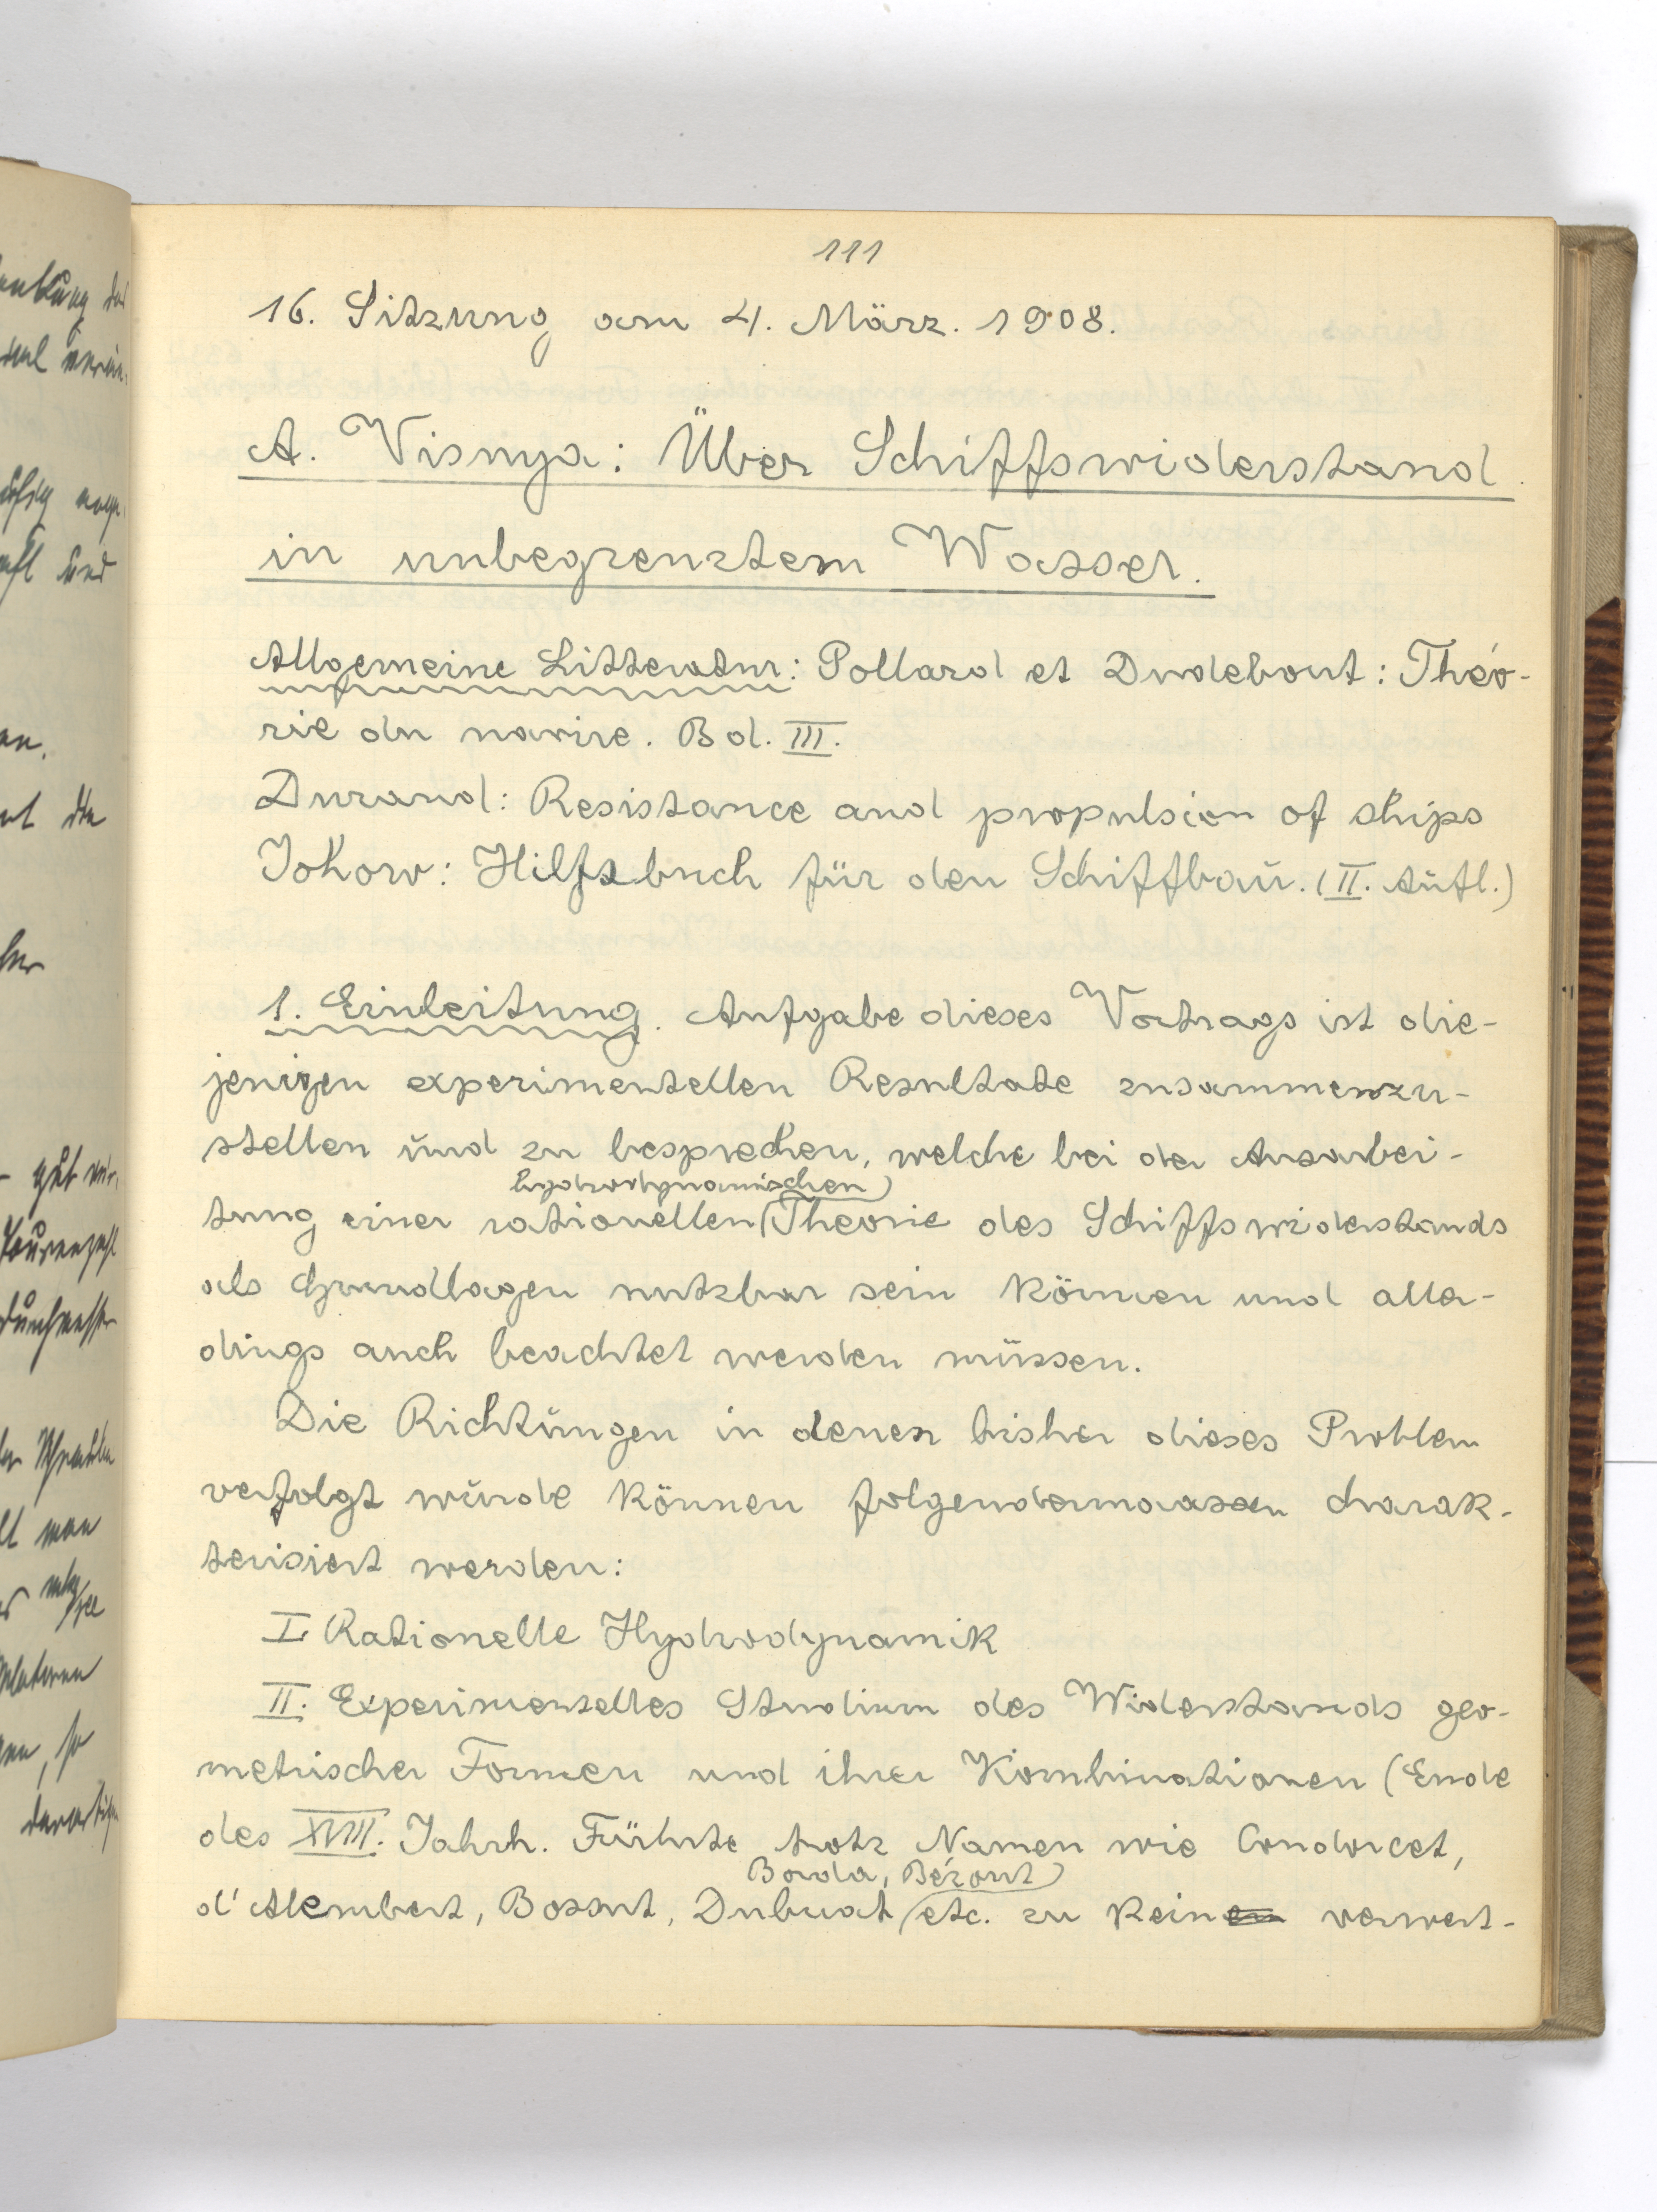 111
16. Sitzung am 4. März. 1908.
A. Visnya: Über Schiffswiderstand
in unbegrenztem Wasser.
Allgemeine Litteratur: Pollard et Dudebout: Théo-
rie du navire. Bd. III.
Durand: Resistance and propulsion of ships
Johow: Hilfsbuch für den Schiffbau. (II. Aufl.)
1. Einleitung. Aufgabe dieses Vortrags ist die-
jenigen experimentellen Resultate zusammenzu-
stellen und zu besprechen, welche bei der Ausarbei-
hydrodynamischen
tung einer rationellen Theorie des Schiffswiderstands
als Grundlagen nutzbar sein können und aller-
dings auch beachtet werden müssen.
Die Richtungen in denen bisher dieses Problem
verfolgt wurde können folgendermaassen charak-
terisiert werden:
I. Rationelle Hydrodynamik
II. Experimentelles Studium des Widerstands geo-
metrischer Formen und ihrer Kombinationen (Ende
des XVIII. Jahrh. Führte trotz Namen wie Condorcet,
Borda, Bézout
d'Alembert, Bossut, Dubuat etc. zu keinen verwert-